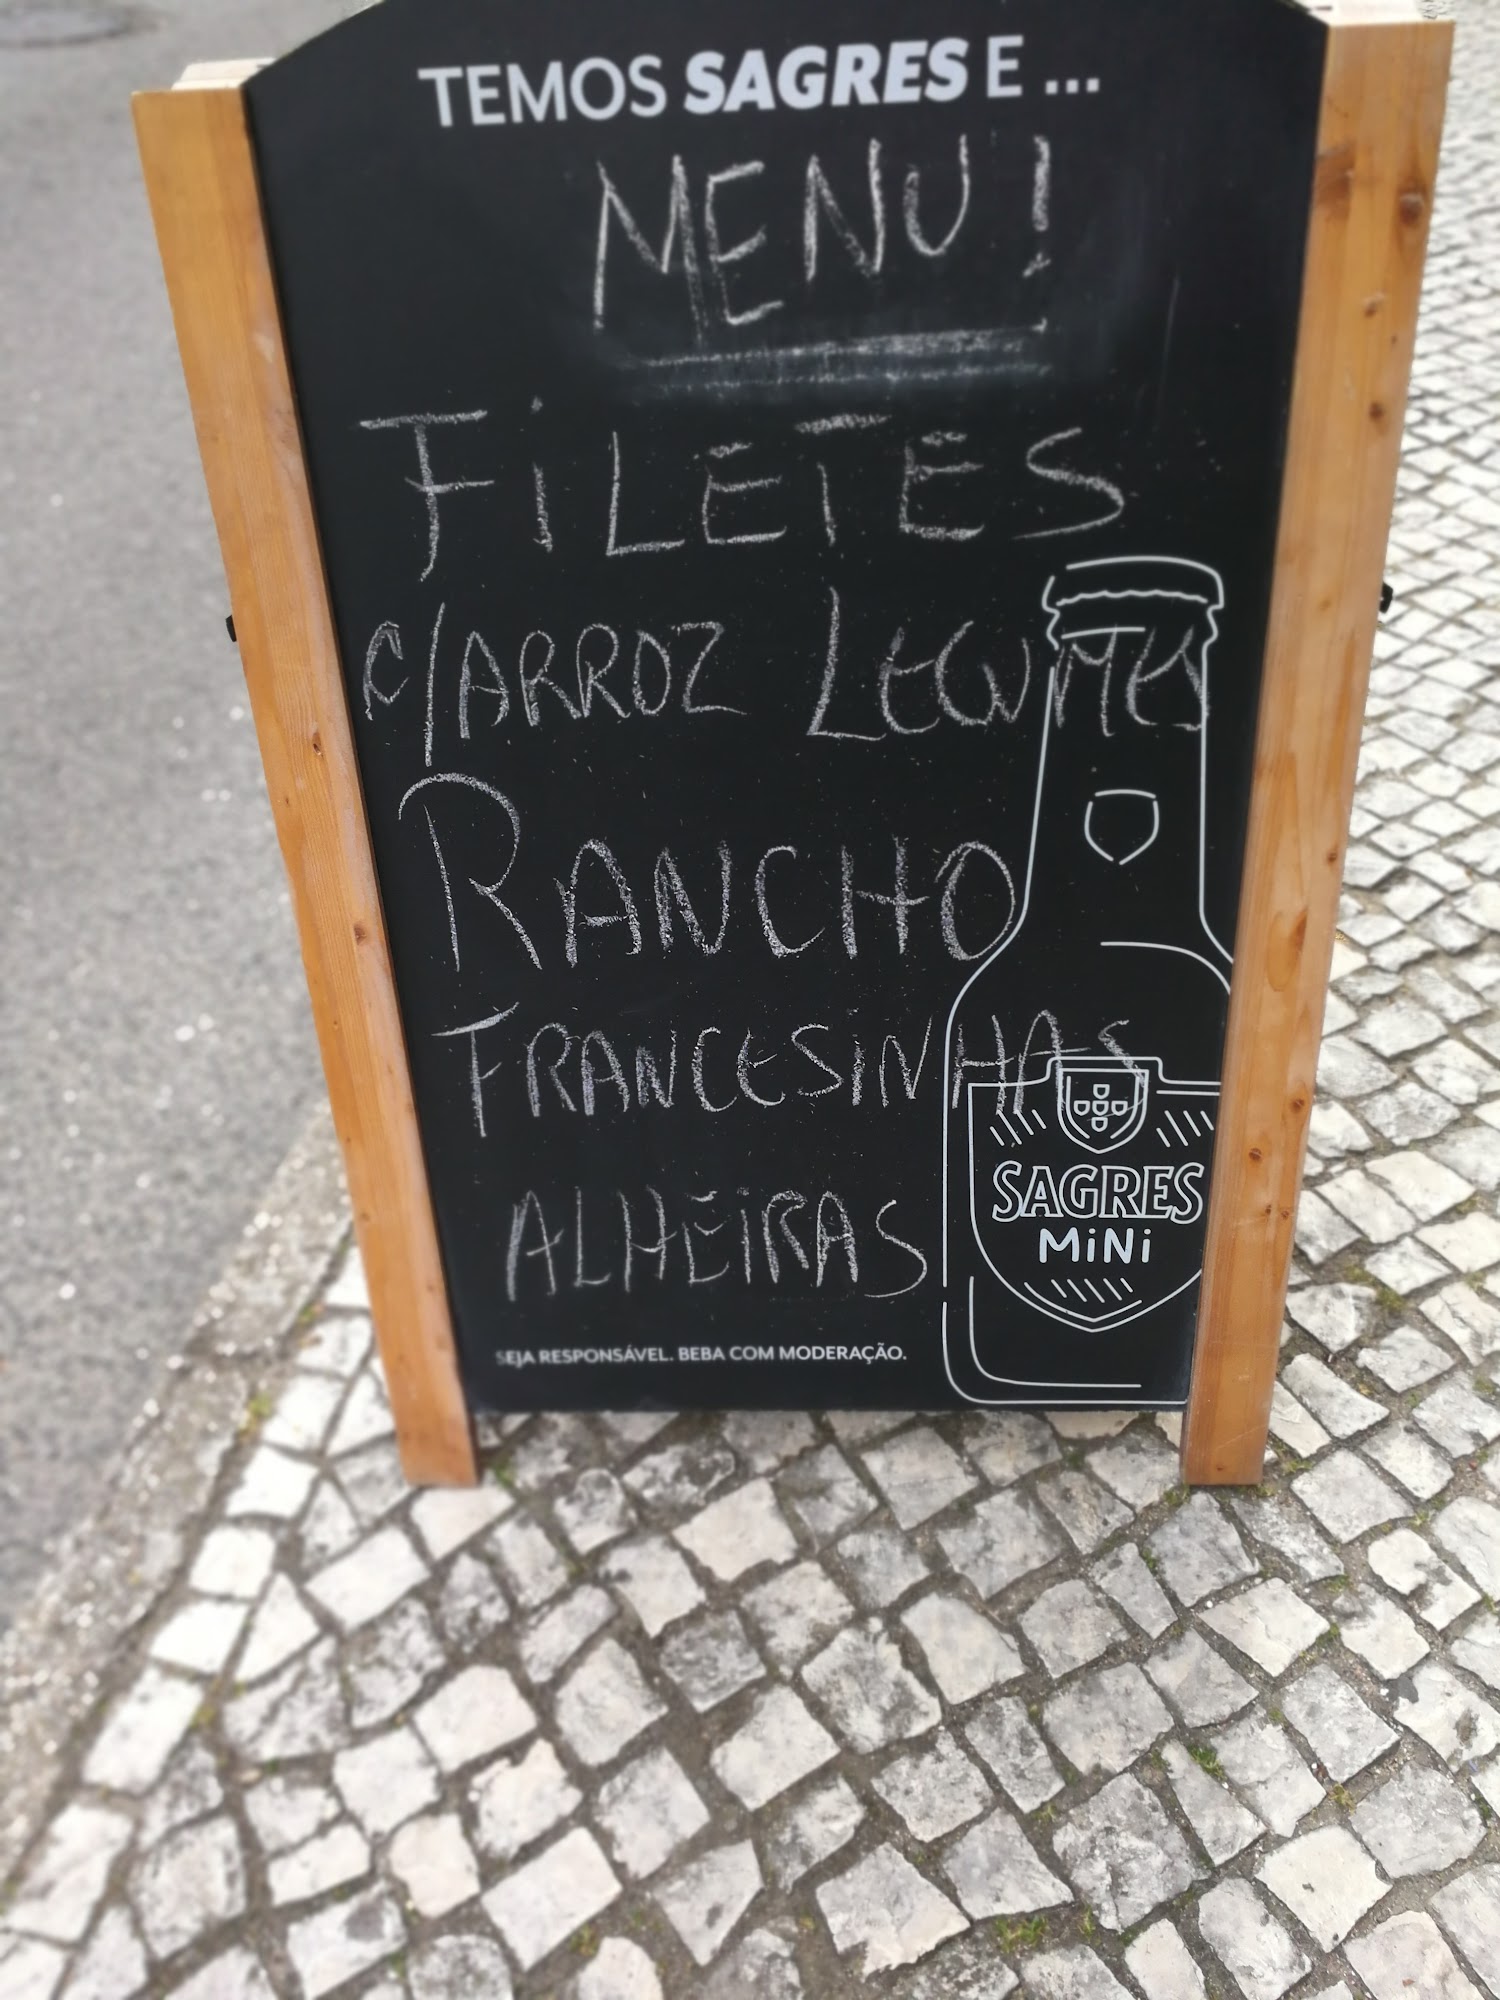 TEMOS SAGRES E ...
MENU!
FILETES
C/ARROZ LEGUMES
RANCHO
FRANCESINHAS
ALHEIRAS
SAGRES
MiNi
SEJA RESPONSÁVEL. BEBA COM MODERAÇÃO.